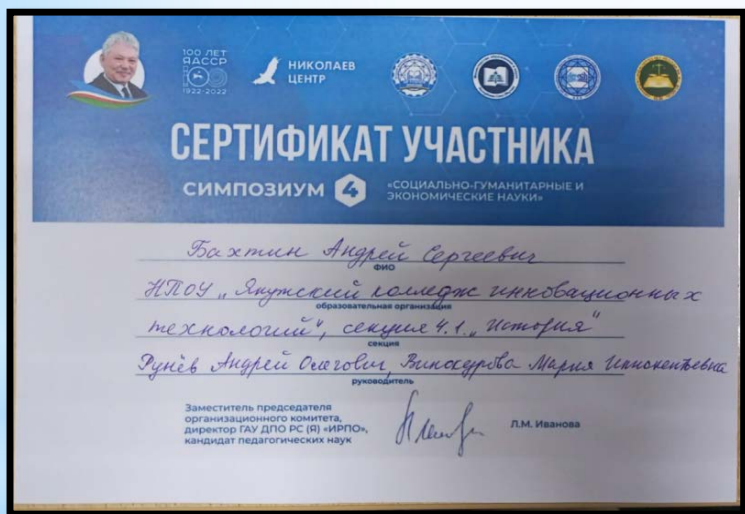 100 ЛЕТ
ЯАССР
1922-2022
НИКОЛАЕВ
ЦЕНТР
СЕРТИФИКАТ УЧАСТНИКА
СИМПОЗИУМ 4 «СОЦИАЛЬНО-ГУМАНИТАРНЫЕ И
ЭКОНОМИЧЕСКИЕ НАУКИ»
Бахтин Андрей Сергеевич
ФИО
НПОУ „Якутский колледж инновационных
образовательная организация
технологий", секция 4.1 „История"
секция
Рунёв Андрей Олегович, Винокурова Мария Иннокентьевна
руководитель
Заместитель председателя
организационного комитета,
директор ГАУ ДПО РС (Я) «ИРПО»,
кандидат педагогических наук
Л.М. Иванова